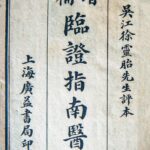 吳江徐靈胎先生評本
臨證指南醫
上海廣益書局印